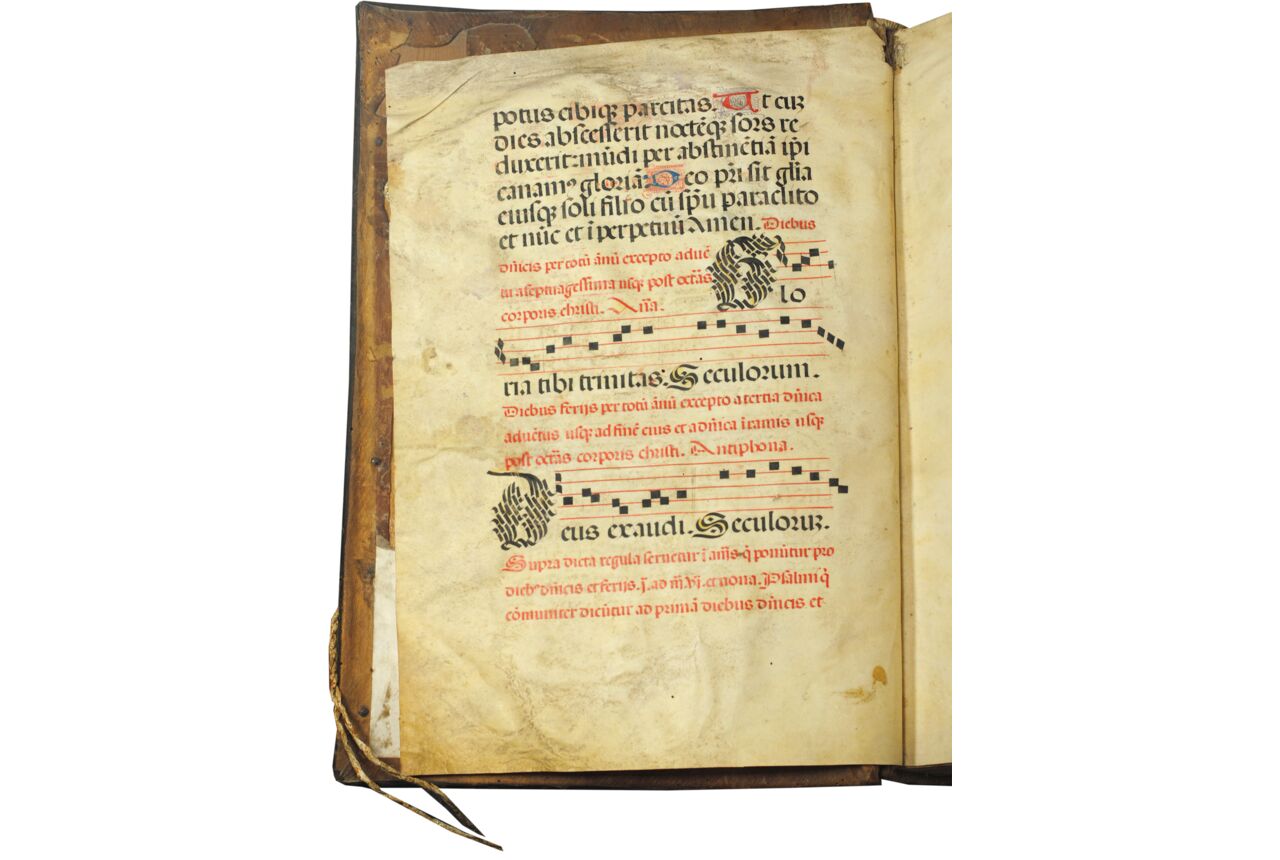 potus cibiqꝫ parcitas. Ut cuꝫ
dies abscesserit noctēqꝫ sors re
duxerit: mūdi per abstinētiā ip̄i
canamꝰ gloriā. Deo pr̄i sit gl̄ia
eiusqꝫ soli filio cū sp̄u paraclito
et nūc et ī perpetuū Amen. Diebus
dn̄icis per totū ānū excepto aduē
tu a septuagessima usqꝫ post octās
corporis christi. Añа. Glo
ria tibi trinitas. Seculorum.
Diebus ferijs per totū ānū excepto a tertia dn̄ica
aduētus usqꝫ ad finē eius et a dn̄ica ī ramis usqꝫ
post octās corporis christi. Antiphona.
Deus exaudi. Seculoruꝫ.
Supra dicta regula seruetur ī añis q̄ ponūtur pro
diebꝰ dn̄icis et ferijs. j. ad iij. vj. et nona. Psalmi q̄
cōmuniter dicūtur ad primā diebus dn̄icis et